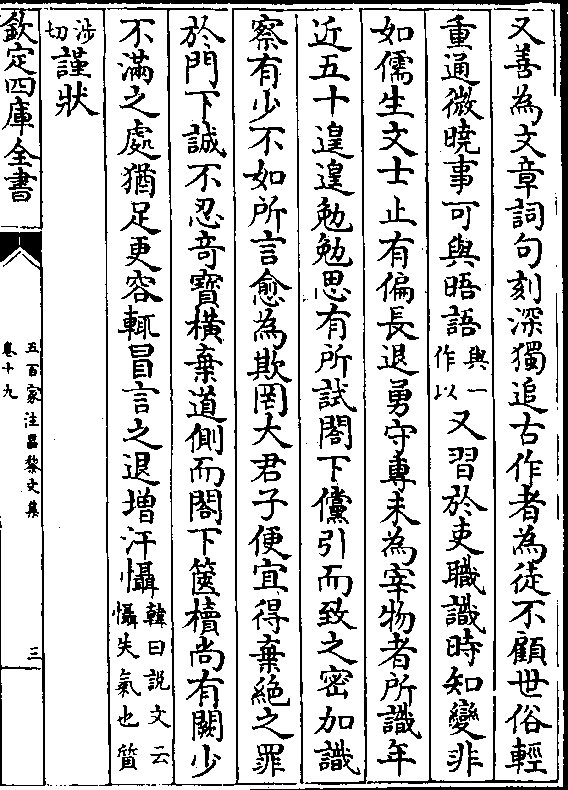 又善為文章詞句刻深獨追古作者為徒不顧世俗輕
重通微曉事可與晤語與一作以又習於吏職識時知變非
如儒生文士止有偏長退勇守專未為宰物者所識年
近五十遑遑勉勉思有所試閣下儻引而致之密加識
察有少不如所言愈為欺罔大君子便宜得棄絶之罪
於門下誠不忍竒寶橫棄道側而閣下篋櫝尚有闕少
不滿之處猶足更容輒冒言之退增汗懾韓曰說文云懾失氣也質
涉切謹狀
欽定四庫全書
五百家注昌黎文集
卷十九
三